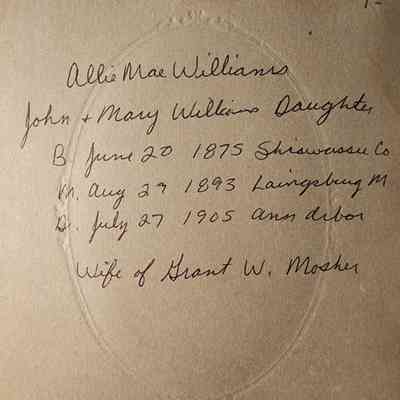 Allie Mae Williams
John + Mary Williams Daughter
B. June 20 1875 Shiawassee Co
M. Aug 29 1893 Laingsburg M
D. July 27 1905 Ann Arbor
Wife of Grant W. Mosher